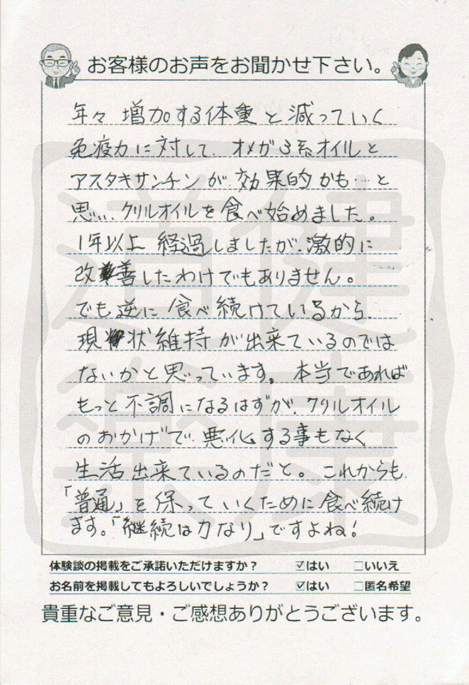 お客様のお声をお聞かせ下さい。
年々 増加する体重と減っていく
免疫力に対して、オメガ3系オイルと
アスタキサンチンが効果的かも…と
思い、クリルオイルを食べ始めました。
1年以上 経過しましたが、激的に
改善したわけでもありません。
でも逆に 食べ続けているから
現状維持が出来ているのでは
ないかと思っています。本当であれば
もっと不調になるはずが、クリルオイル
のおかげで、悪化する事もなく
生活出来ているのだと。これからも
「普通」を保っていくために食べ続け
ます。「継続は力なり」ですよね！
体験談の掲載をご承諾いただけますか？ ☑はい □いいえ
お名前を掲載してもよろしいでしょうか？ ☑はい □匿名希望
貴重なご意見・ご感想ありがとうございます。